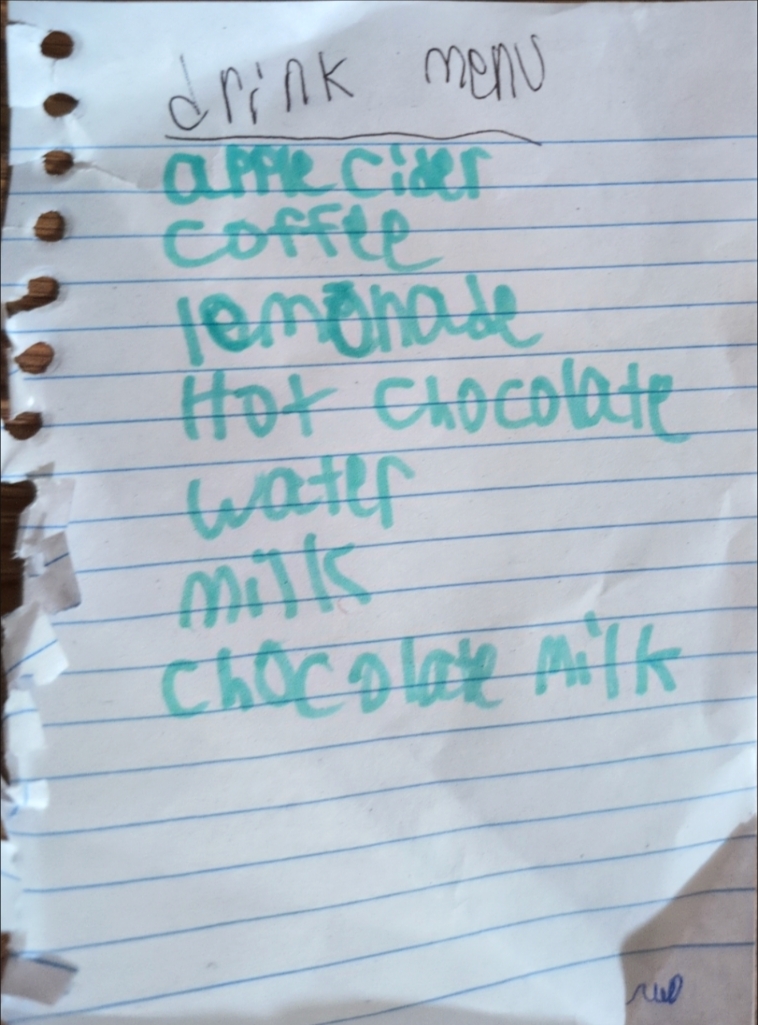 drink menu
apple cider
coffee
lemonade
Hot chocolate
water
milk
chocolate milk